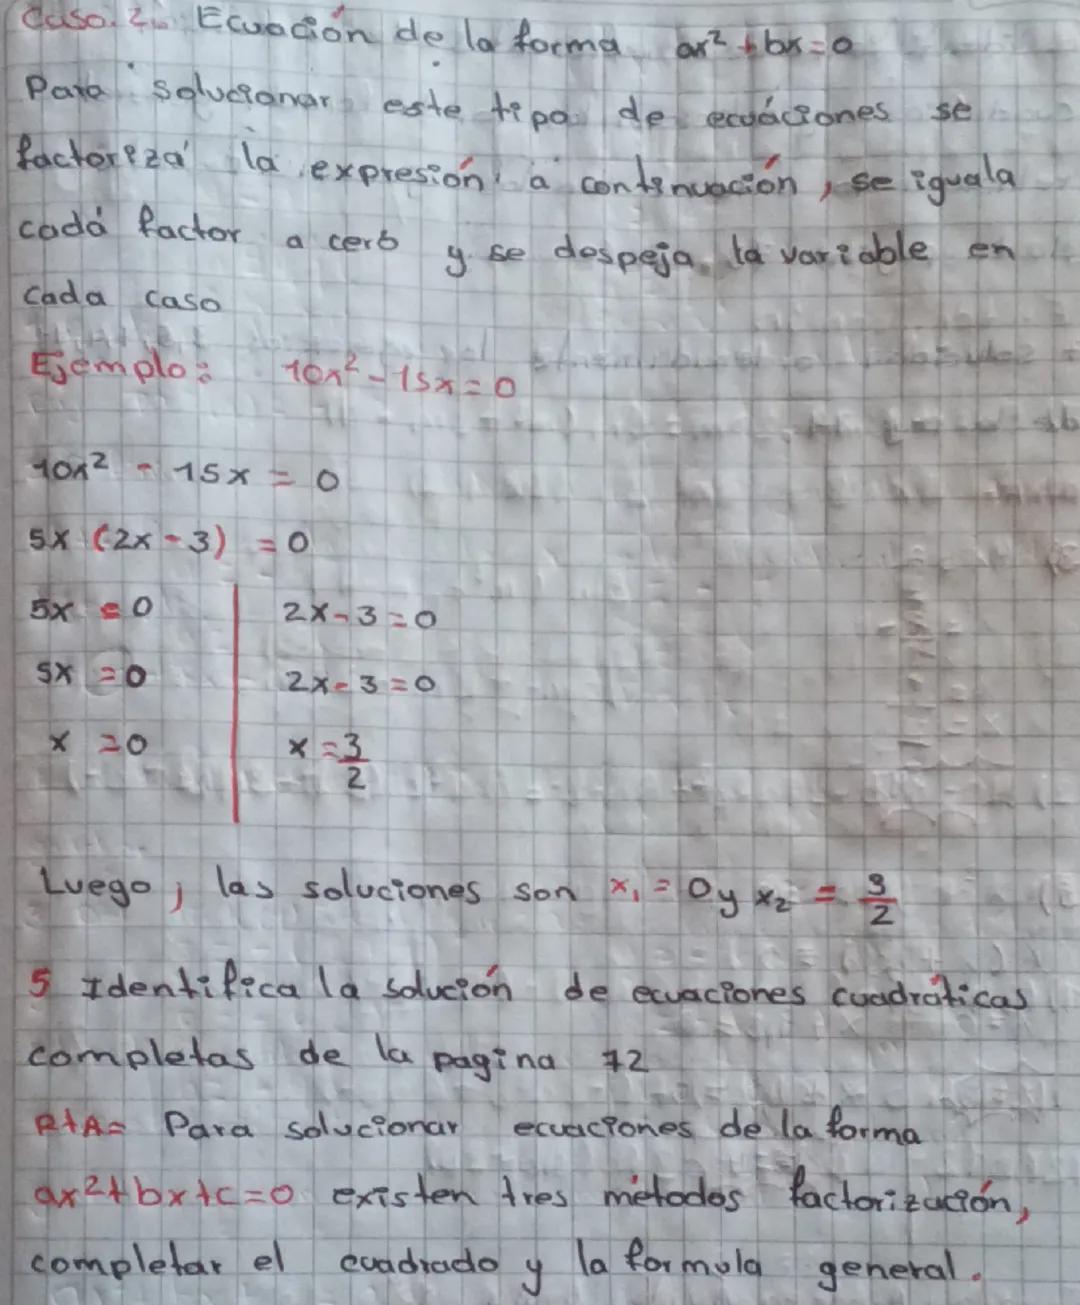 Caso. 2. Ecuación de la forma ax² + bx = 0
Para solucionar este tipo de ecuáciones se
factoriza la expresión a continuación, se iguala
cada factor a cero y se despeja la variable en
cada caso
Ejemplo: 10x² - 15x = 0
10x² - 15x = 0
5x (2x - 3) = 0
5x = 0 2x - 3 = 0
5x = 0 2x - 3 = 0
x = 0 x = 3/2
Luego, las soluciones son x₁ = 0 y x₂ = 3/2
5 Identifica la solución de ecuaciones cuadráticas
completas de la pagina 72
RtA= Para solucionar ecuaciones de la forma
ax²+bx+c=0 existen tres métodos factorización,
completar el cuadrado y la formula general.